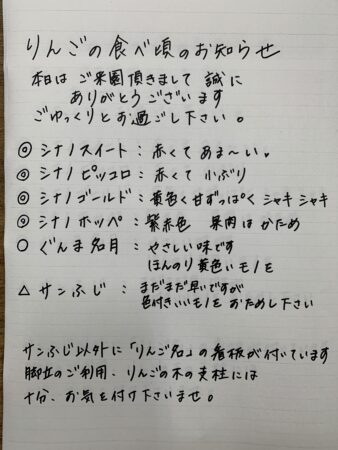 りんごの食べ頃のお知らせ
本日は ご来園頂きまして 誠に
ありがとうございます
ごゆっくりとお過ごし下さい。
◎ シナノスイート : 赤くて あま〜い。
◎ シナノ ピッコロ : 赤くて 小ぶり
◎ シナノゴールド : 黄色く甘ずっぱく シャキ シャキ
◎ シナノ ホッペ : 紫赤色 果肉は かため
○ ぐんま名月 : やさしい味です
ほんのり黄色いモノを
△ サンふじ : まだまだ早いですが
色付きいいモノを おためし下さい
サンふじ以外に「りんご名」の看板が付いています
脚立のご利用、りんごの木の支柱には
十分、お気を付け下さいませ。